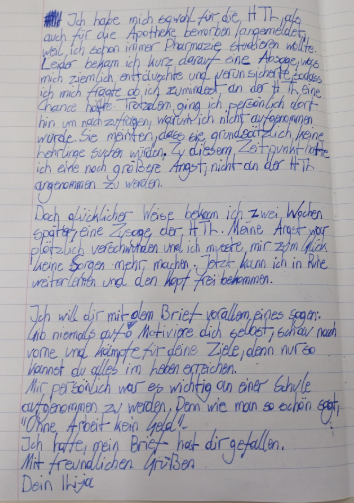 Ich habe mich sowohl für die HTL, als
auch für die Apotheke beworben/angemeldet,
weil ich schon immer Pharmazie studieren wollte.
Leider bekam ich kurz darauf eine Absage, was
mich ziemlich enttäuschte und verunsicherte, sodass
ich mich fragte ob ich zumindest an der HTL eine
Chance hätte. Trotzdem ging ich persönlich dort
hin um nachzufragen, warum ich nicht aufgenommen
wurde. Sie meinten, dass sie grundsätzlich keine
Lehrlinge suchen würden. Zu diesem Zeitpunkt hatte
ich eine noch größere Angst, nicht an der HTL
angenommen zu werden.
Doch glücklicher Weise bekam ich zwei Wochen
später eine Zusage der HTL. Meine Angst war
plötzlich verschwunden und ich musste mir zum Glück
keine Sorgen mehr machen. Jetzt kann ich in Ruhe
weiterlernen und den Kopf frei bekommen.
Ich will dir mit dem Brief vorallem eines sagen:
Gib niemals auf! Motiviere dich selbst, schau nach
vorne und kämpfe für deine Ziele, denn nur so
kannst du alles im Leben erreichen.
Mir persönlich war es wichtig an einer Schule
aufgenommen zu werden. Denn wie man so schön sagt,
"Ohne Arbeit kein Geld".
Ich hoffe, mein Brief hat dir gefallen.
Mit freundlichen Grüßen
Dein